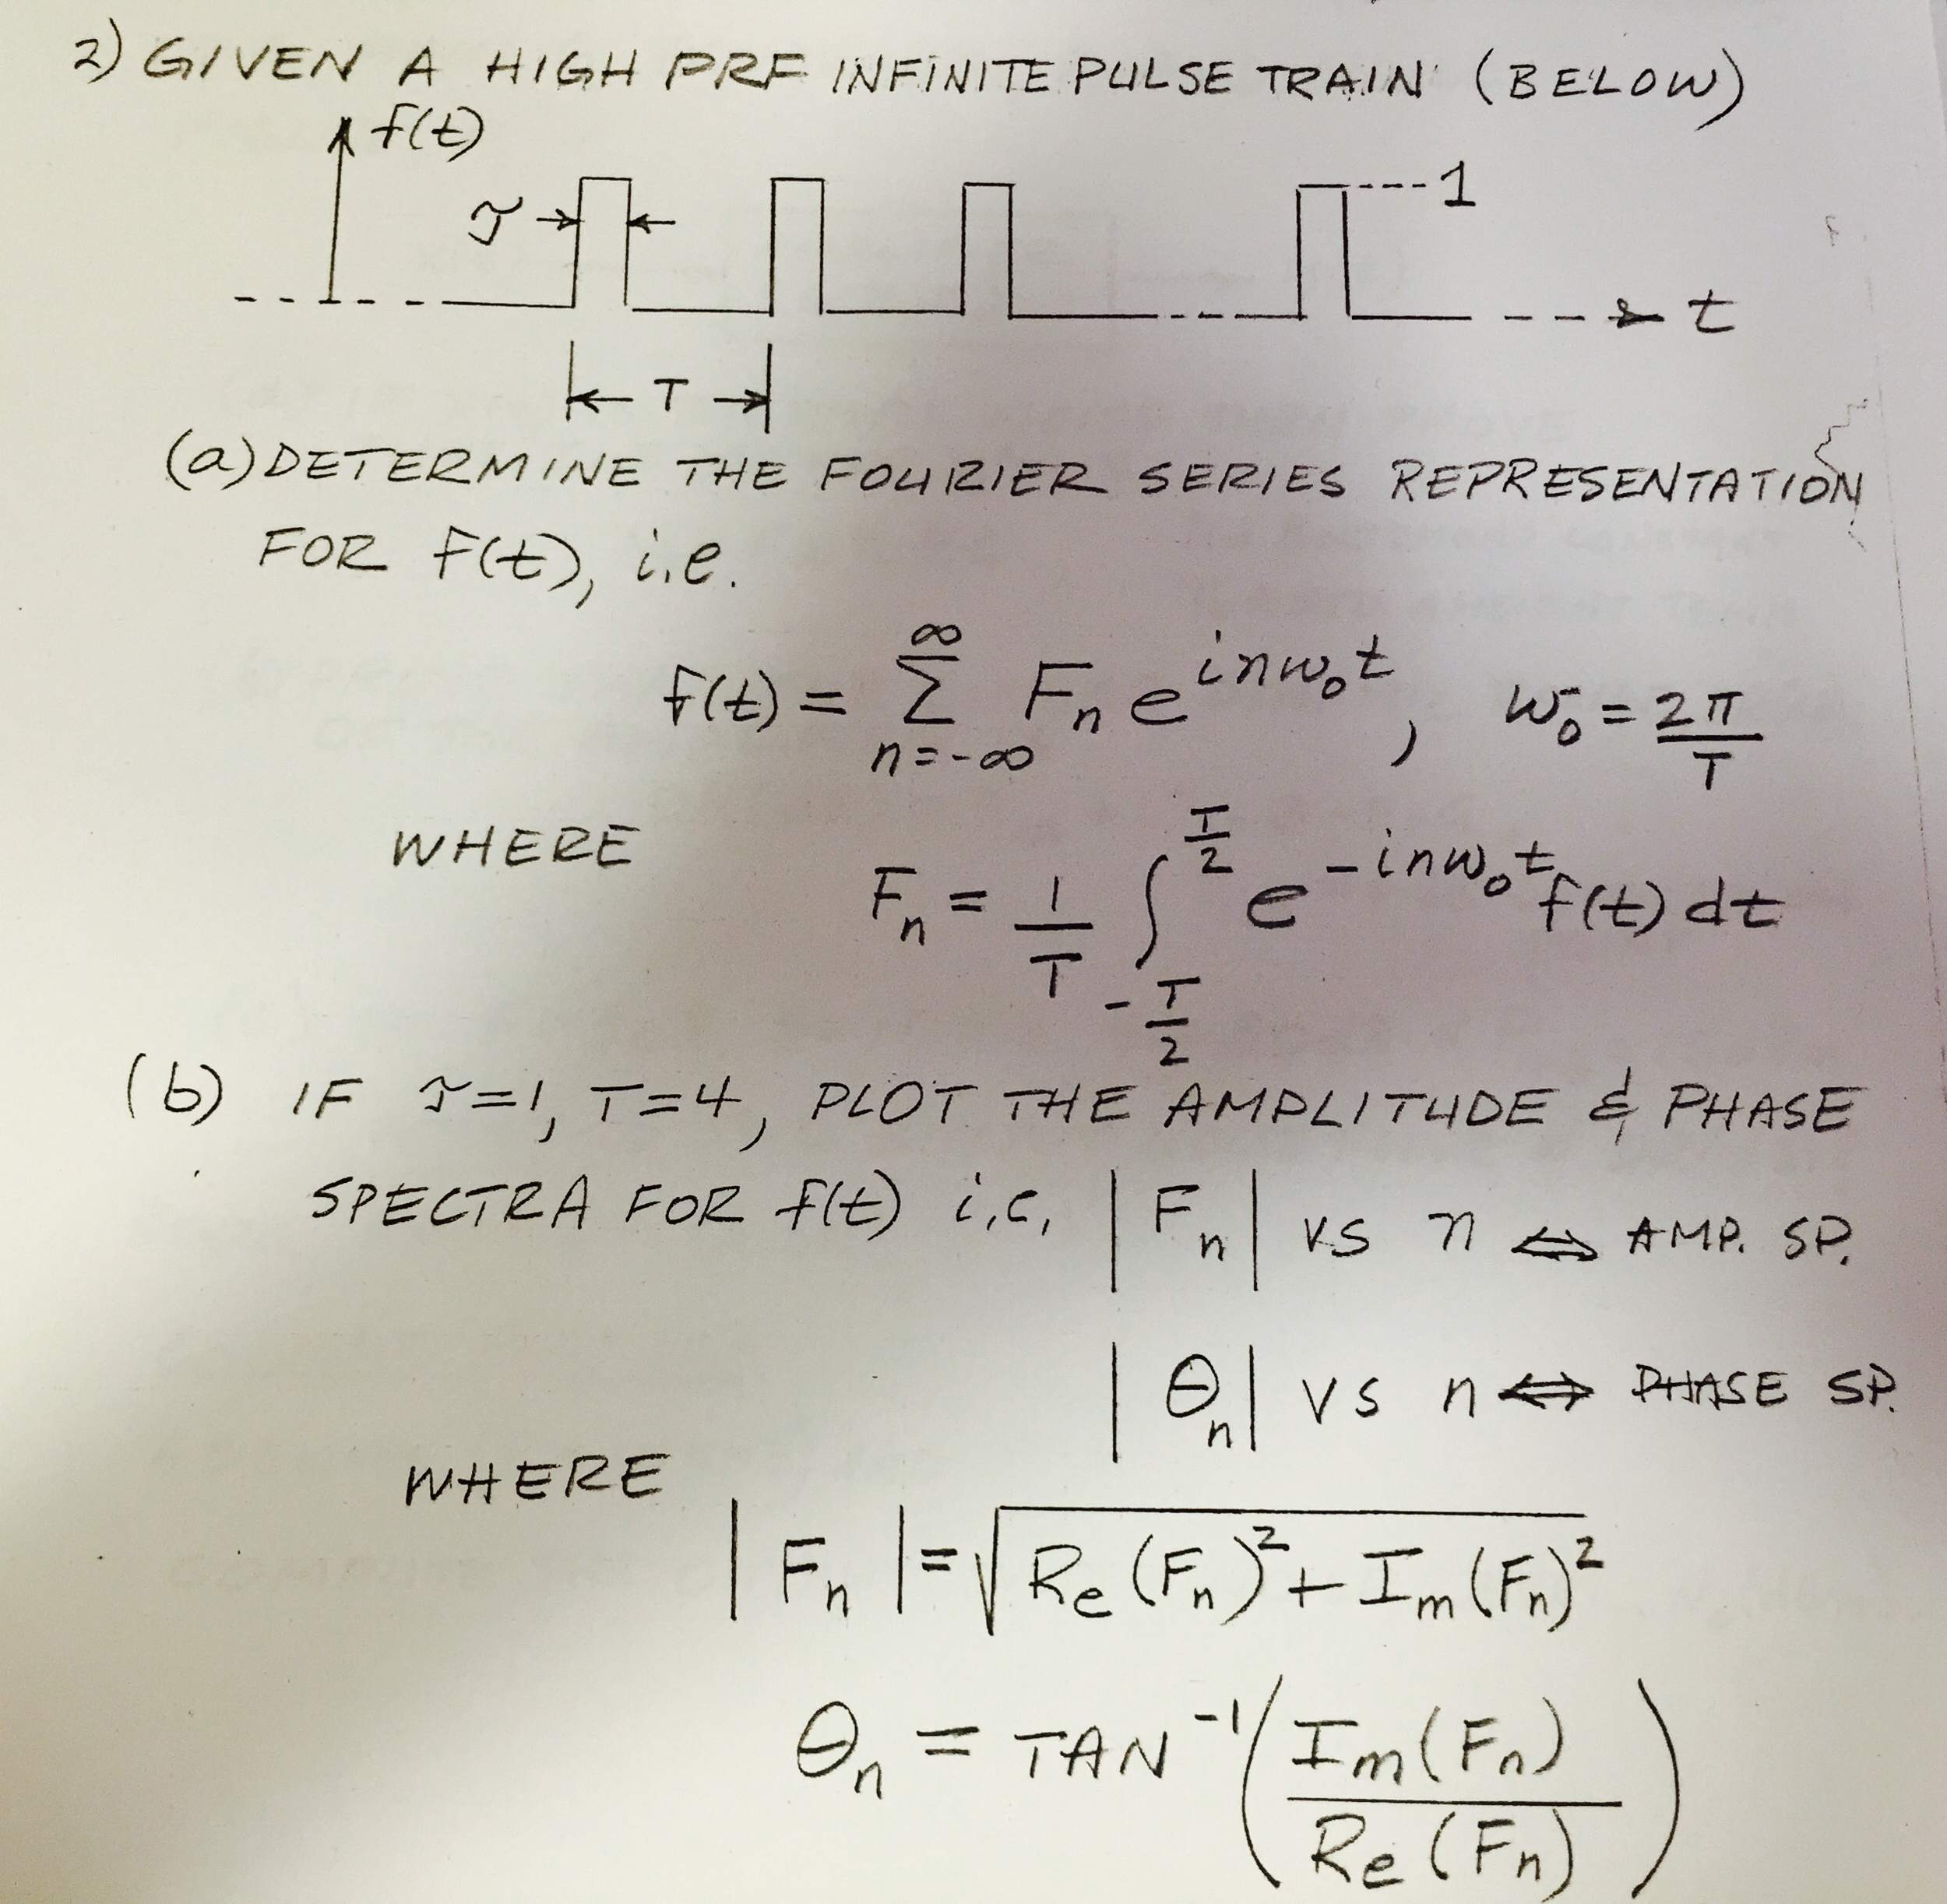 2) GIVEN A HIGH PRF INFINITE PULSE TRAIN (BELOW)
f(t)
τ
1
t
T
(a) DETERMINE THE FOURIER SERIES REPRESENTATION
FOR f(t), i.e.
f(t) = ∞ Σ n=-∞ F_n e^{inω_0t}, ω_0 = 2π/T
WHERE
F_n = 1/T ∫_{-T/2}^{T/2} e^{-inω_0t} f(t) dt
(b) IF τ=1, T=4, PLOT THE AMPLITUDE & PHASE
SPECTRA FOR f(t) i.e, |F_n| VS n ⇔ AMP. SP.
|θ_n| VS n ⇔ PHASE SP.
WHERE
|F_n| = √(Re(F_n)² + Im(F_n)²)
θ_n = TAN⁻¹(Im(F_n)/Re(F_n))